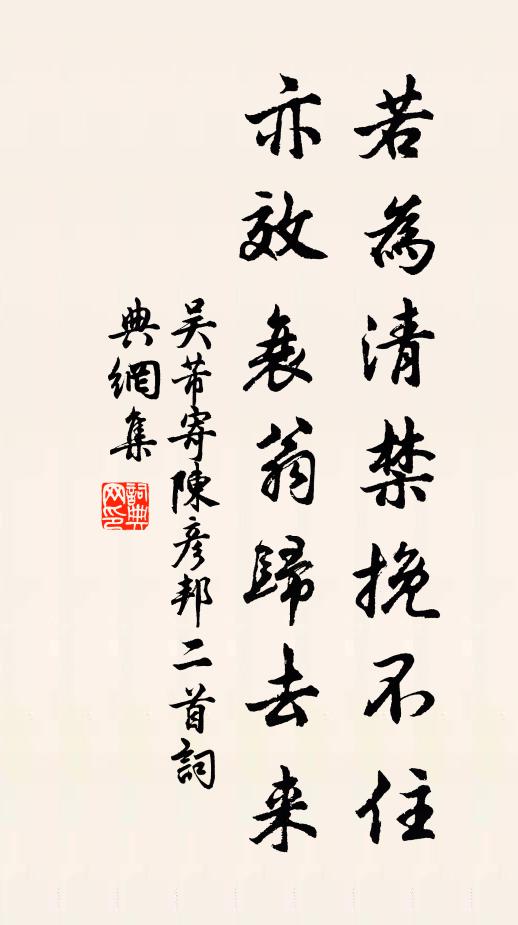 若為清禁挽不住
亦效衰翁歸去来
吴芾寄陳彦邦二首詞
典網集
詞典网印